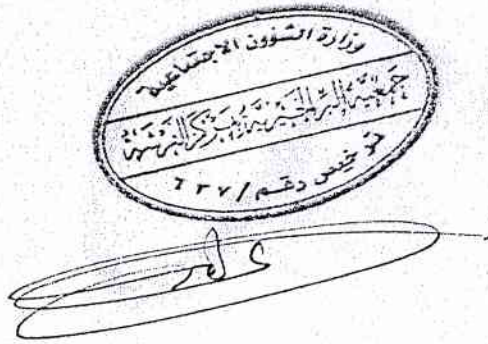 وزارة الشؤون الاجتماعية
جمعية البر الخيرية بمركز البرشهة
ترخيص رقم / ٦٣٧